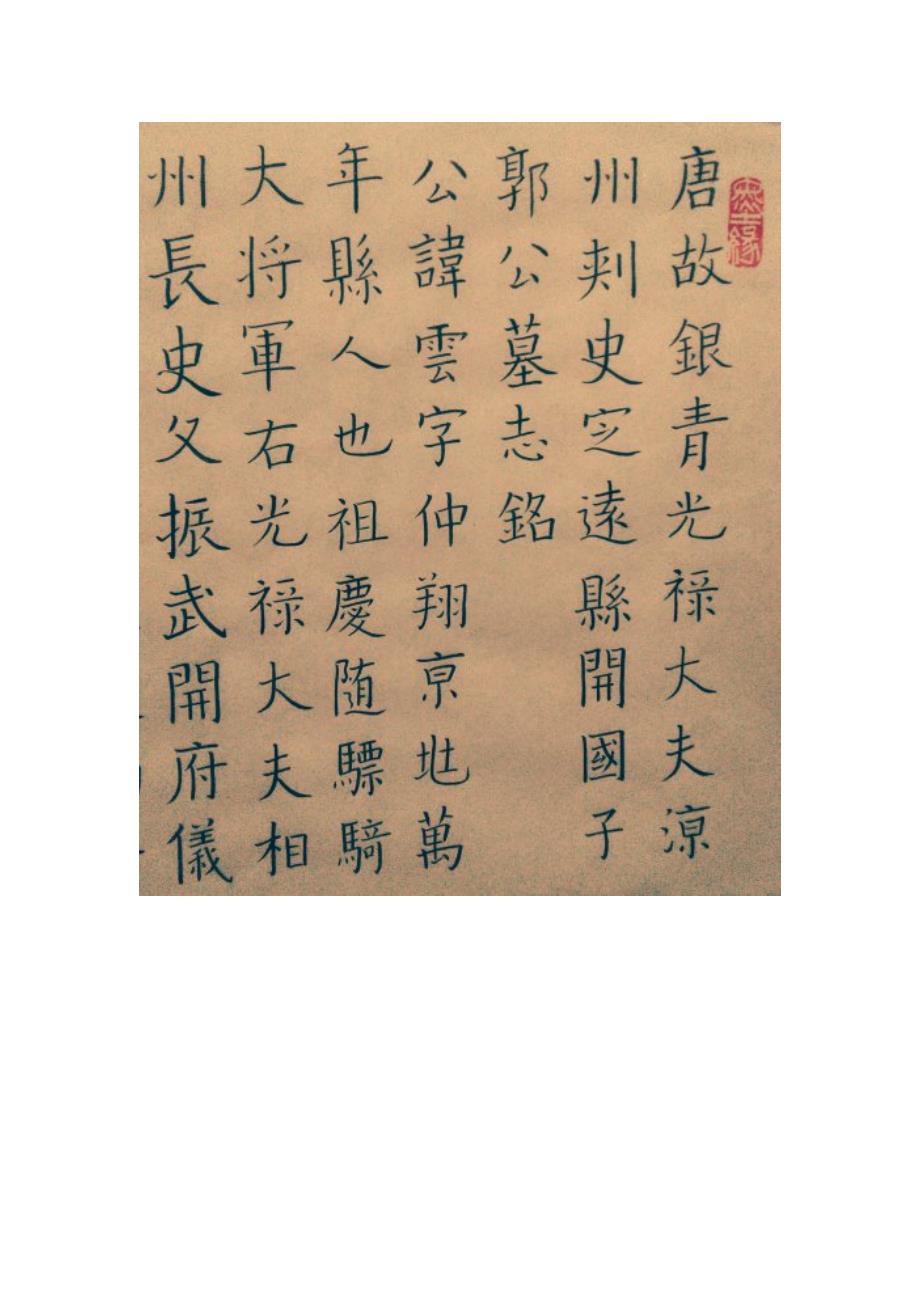 墨緣
唐故銀青光禄大夫涼
州刺史定遠縣開國子
郭公墓志銘
公諱雲字仲翔京地萬
年縣人也祖慶随驃騎
大将軍右光禄大夫相
州長史父振武開府儀